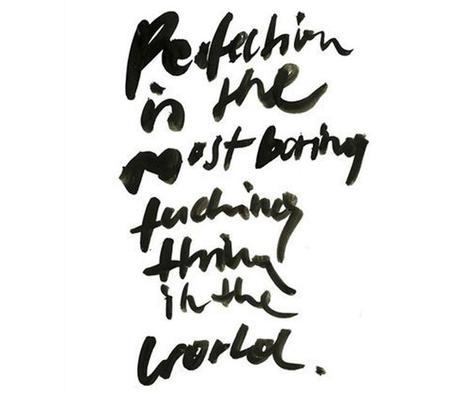 Perfection
is the
most boring
fucking
thing
in the
world.